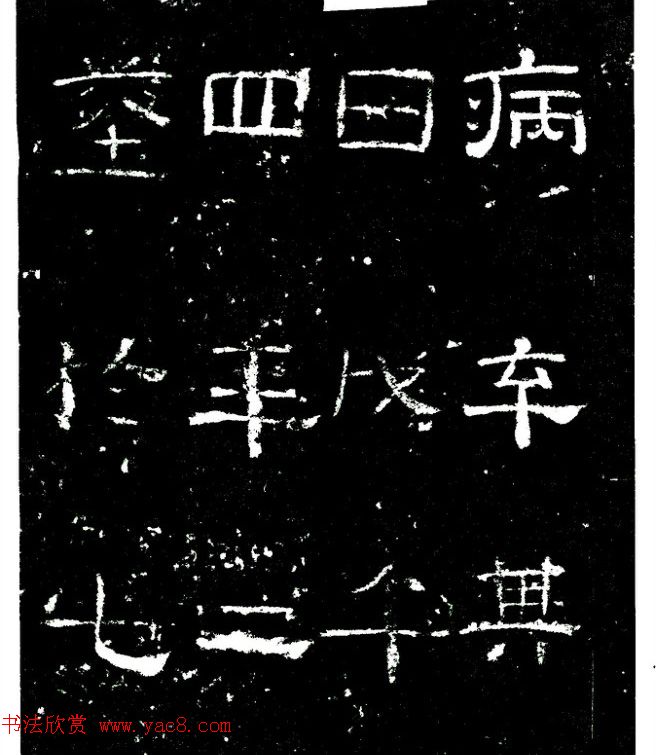 病卒其
日戊午
四年二
塟於七
书法欣赏 www.yac8.com